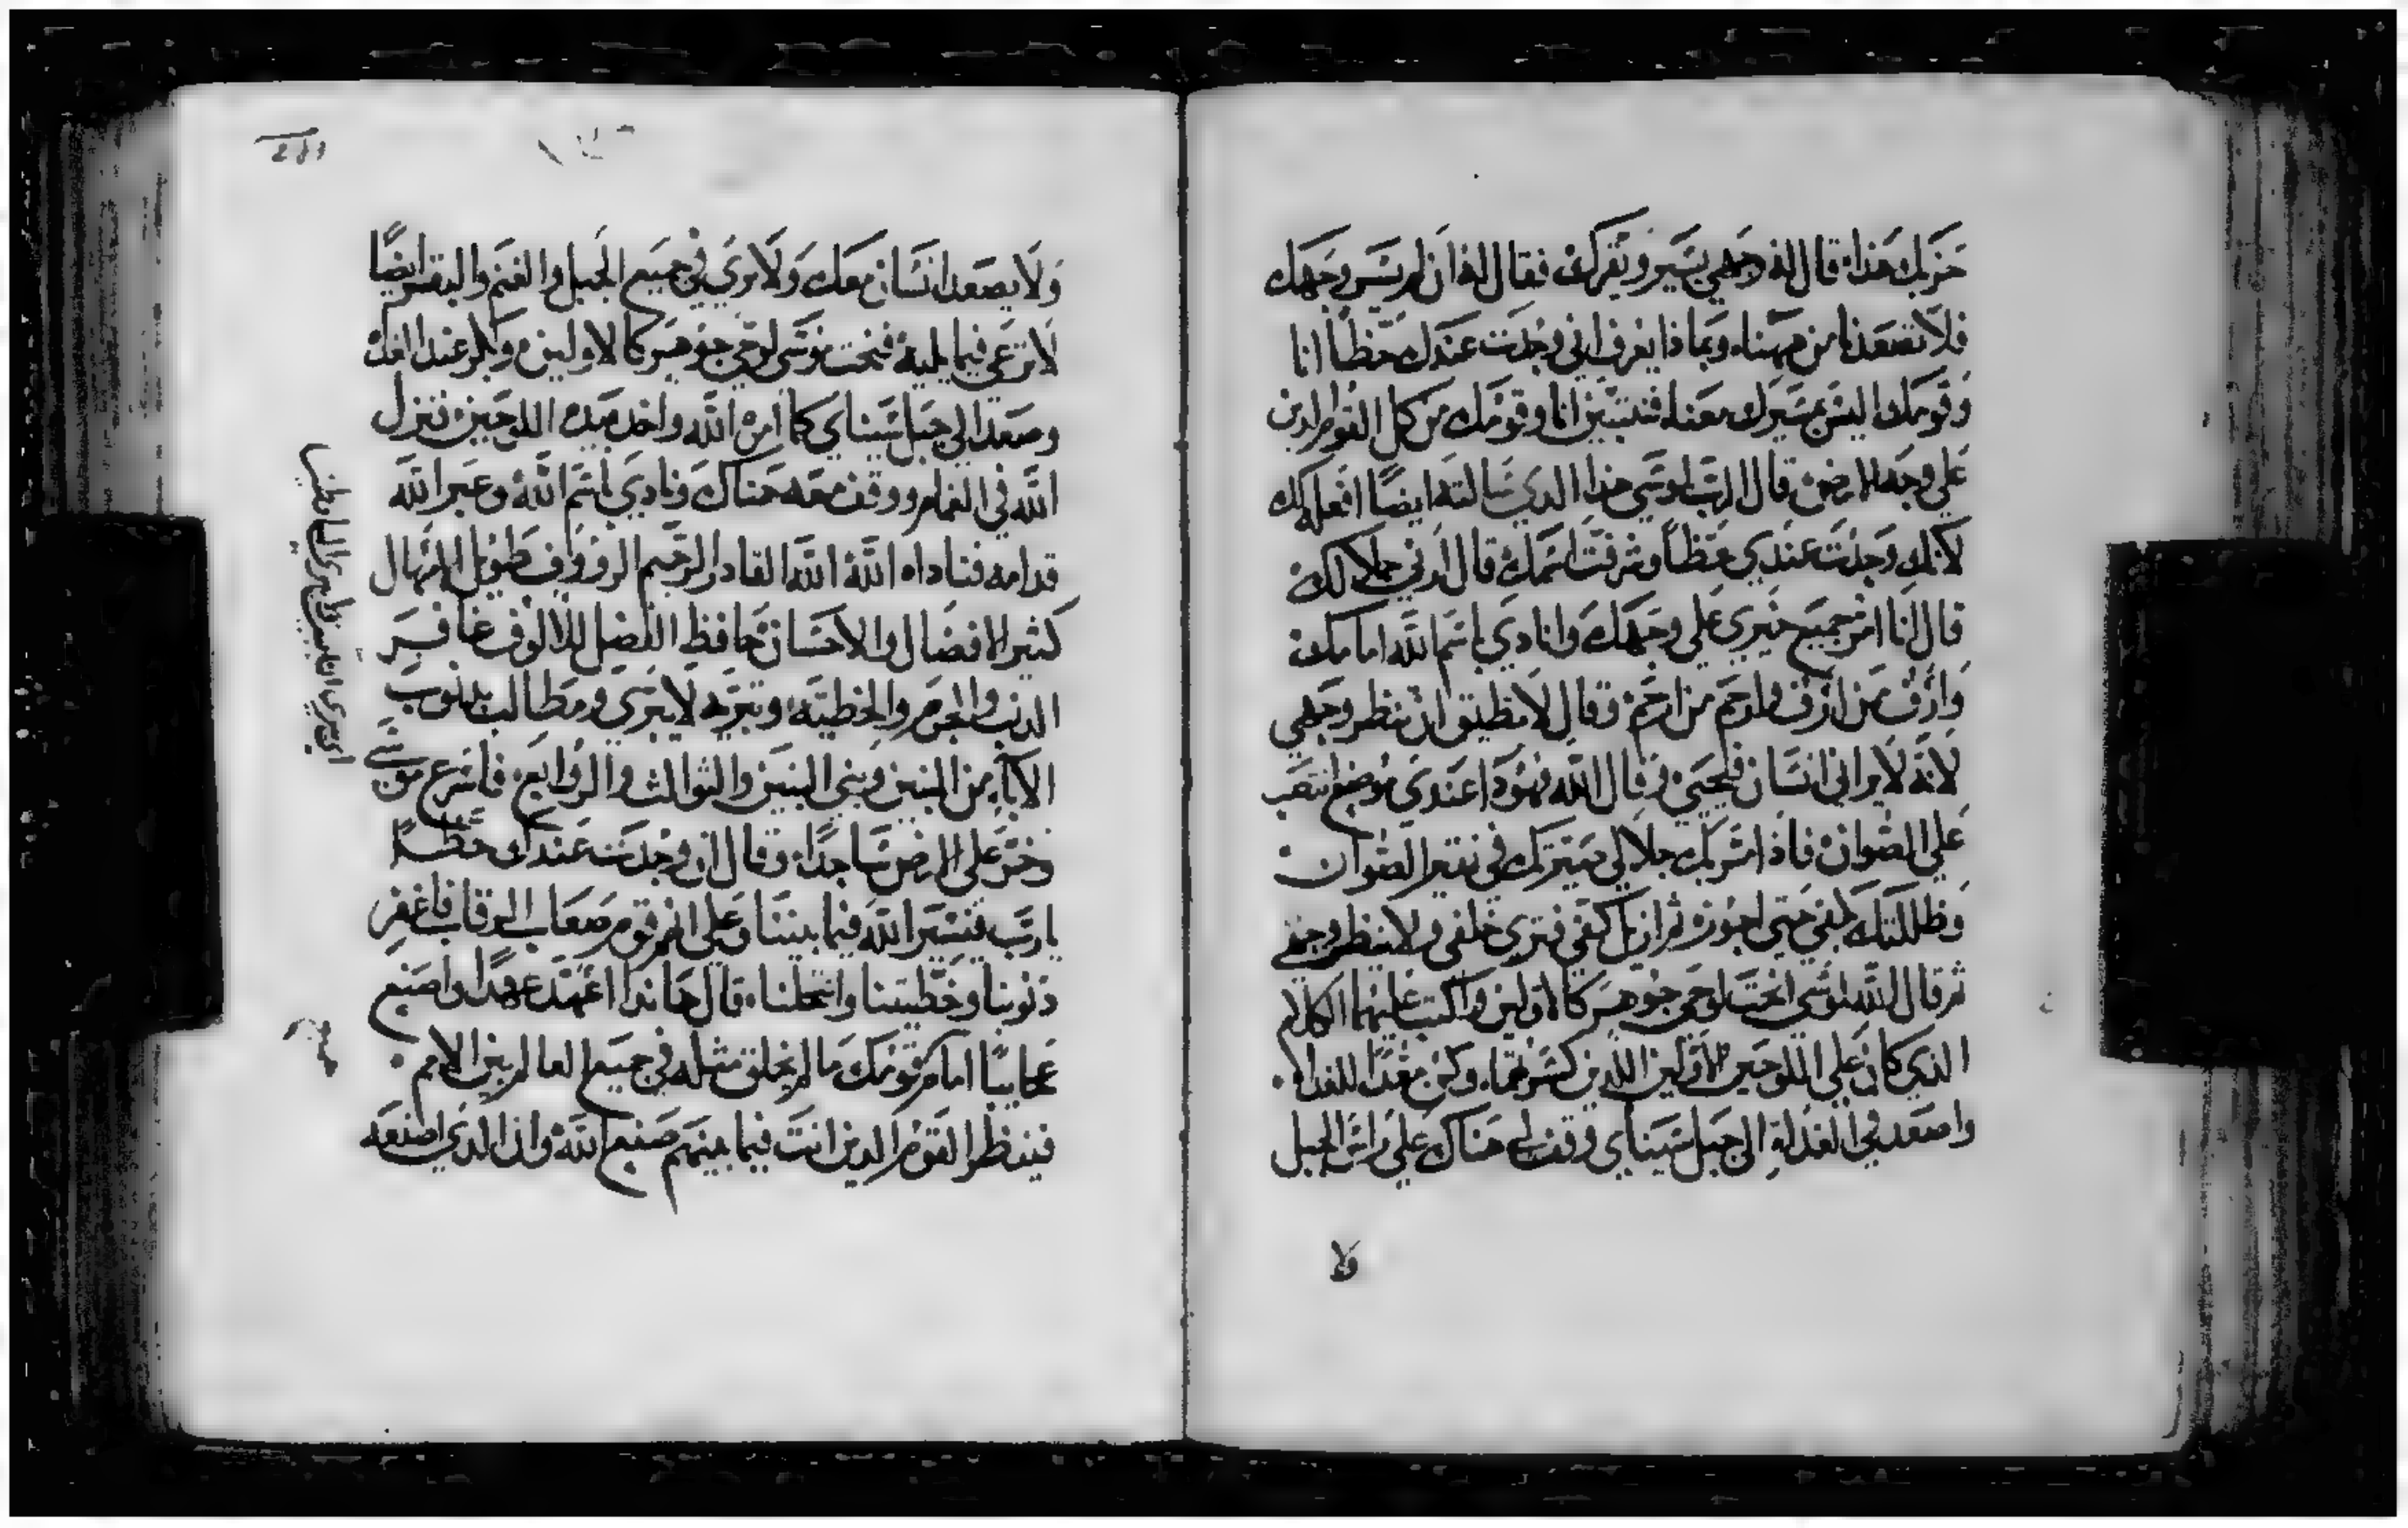 حزبك هذا قال له وجهي يسير ويقرك فقال له ان لم يسر وجهك
فلا تصعدنا من ههنا وبماذا يعرف اني وجدت عندك حظا انا
وقومك اليس بمسيرك معنا فنتبين انا وقومك من كل القوم الدين
على وجه الارض قال الرب لموسى هذا الدي سالته ايضا افعله لك
لانك وجدت عندي حظا وشرفت اسمك قال ارني جلالك
قال انا امر جميع خيري على وجهك وانادي باسم الله امامك
وارؤف من ارؤف وارحم من ارحم وقال لا تطيق ان تنظر وجهي
لانه لا يراني انسان فيحيى وقال الله هودا عندي موضع انتصب
على الصوان فاذا مر بك جلالي صيرتك في نقير الصوان
وظللتك بكفي حتى اجوز ثم ازيل كفي فترى خلفي ولا ينظر وجهي
ثم قال الله لموسى انحت لوحي جوهر كالاولين واكتب عليهما الكلام
الدي كان على اللوحين الاولين اللدين كسرتهما وكن معدا للغداه
واصعد في الغداة الى جبل سيناي وقف لي هناك على راس الجبل
ولا
ولا يصعد انسان معك ولا يرى في جميع الجبل والغنم والبقر ايضا
لا ترعى فيما يليه فنحت موسى لوحي جوهر كالاولين وبكر عند الغداه
وصعد الى جبل سيناي كما امره الله واخد بيده اللوحين فنزل
الله في الغمام ووقف معه هناك ونادى باسم الله وعبر الله
قدامه فناداه الله الله القادر الرحيم الرووف طويل الامهال
كثير الافضال والاحسان حافظ الفضل للالوف غافر
الدنب والجرم والخطيه وتبريه لا يبرى ومطالب بدنوب
الاباء من البنين وبني البنين والثوالث والروابع فاسرع موسى
وخر على الارض ساجدا وقال ان وجدت عندك حظا
يارب فيسير الله فيما بيننا وعلى انهم قوم صعاب الرقاب فاغفر
دنوبنا وخطيتنا وانحلنا قال ها ندا اعهد عهدا واصنع
عجايبا امام قومك ما لم يخلق مثله في جميع العالم بين الامم
فينظر القوم الدين انت فيما بينهم صنيع الله وان الدي اصنعه